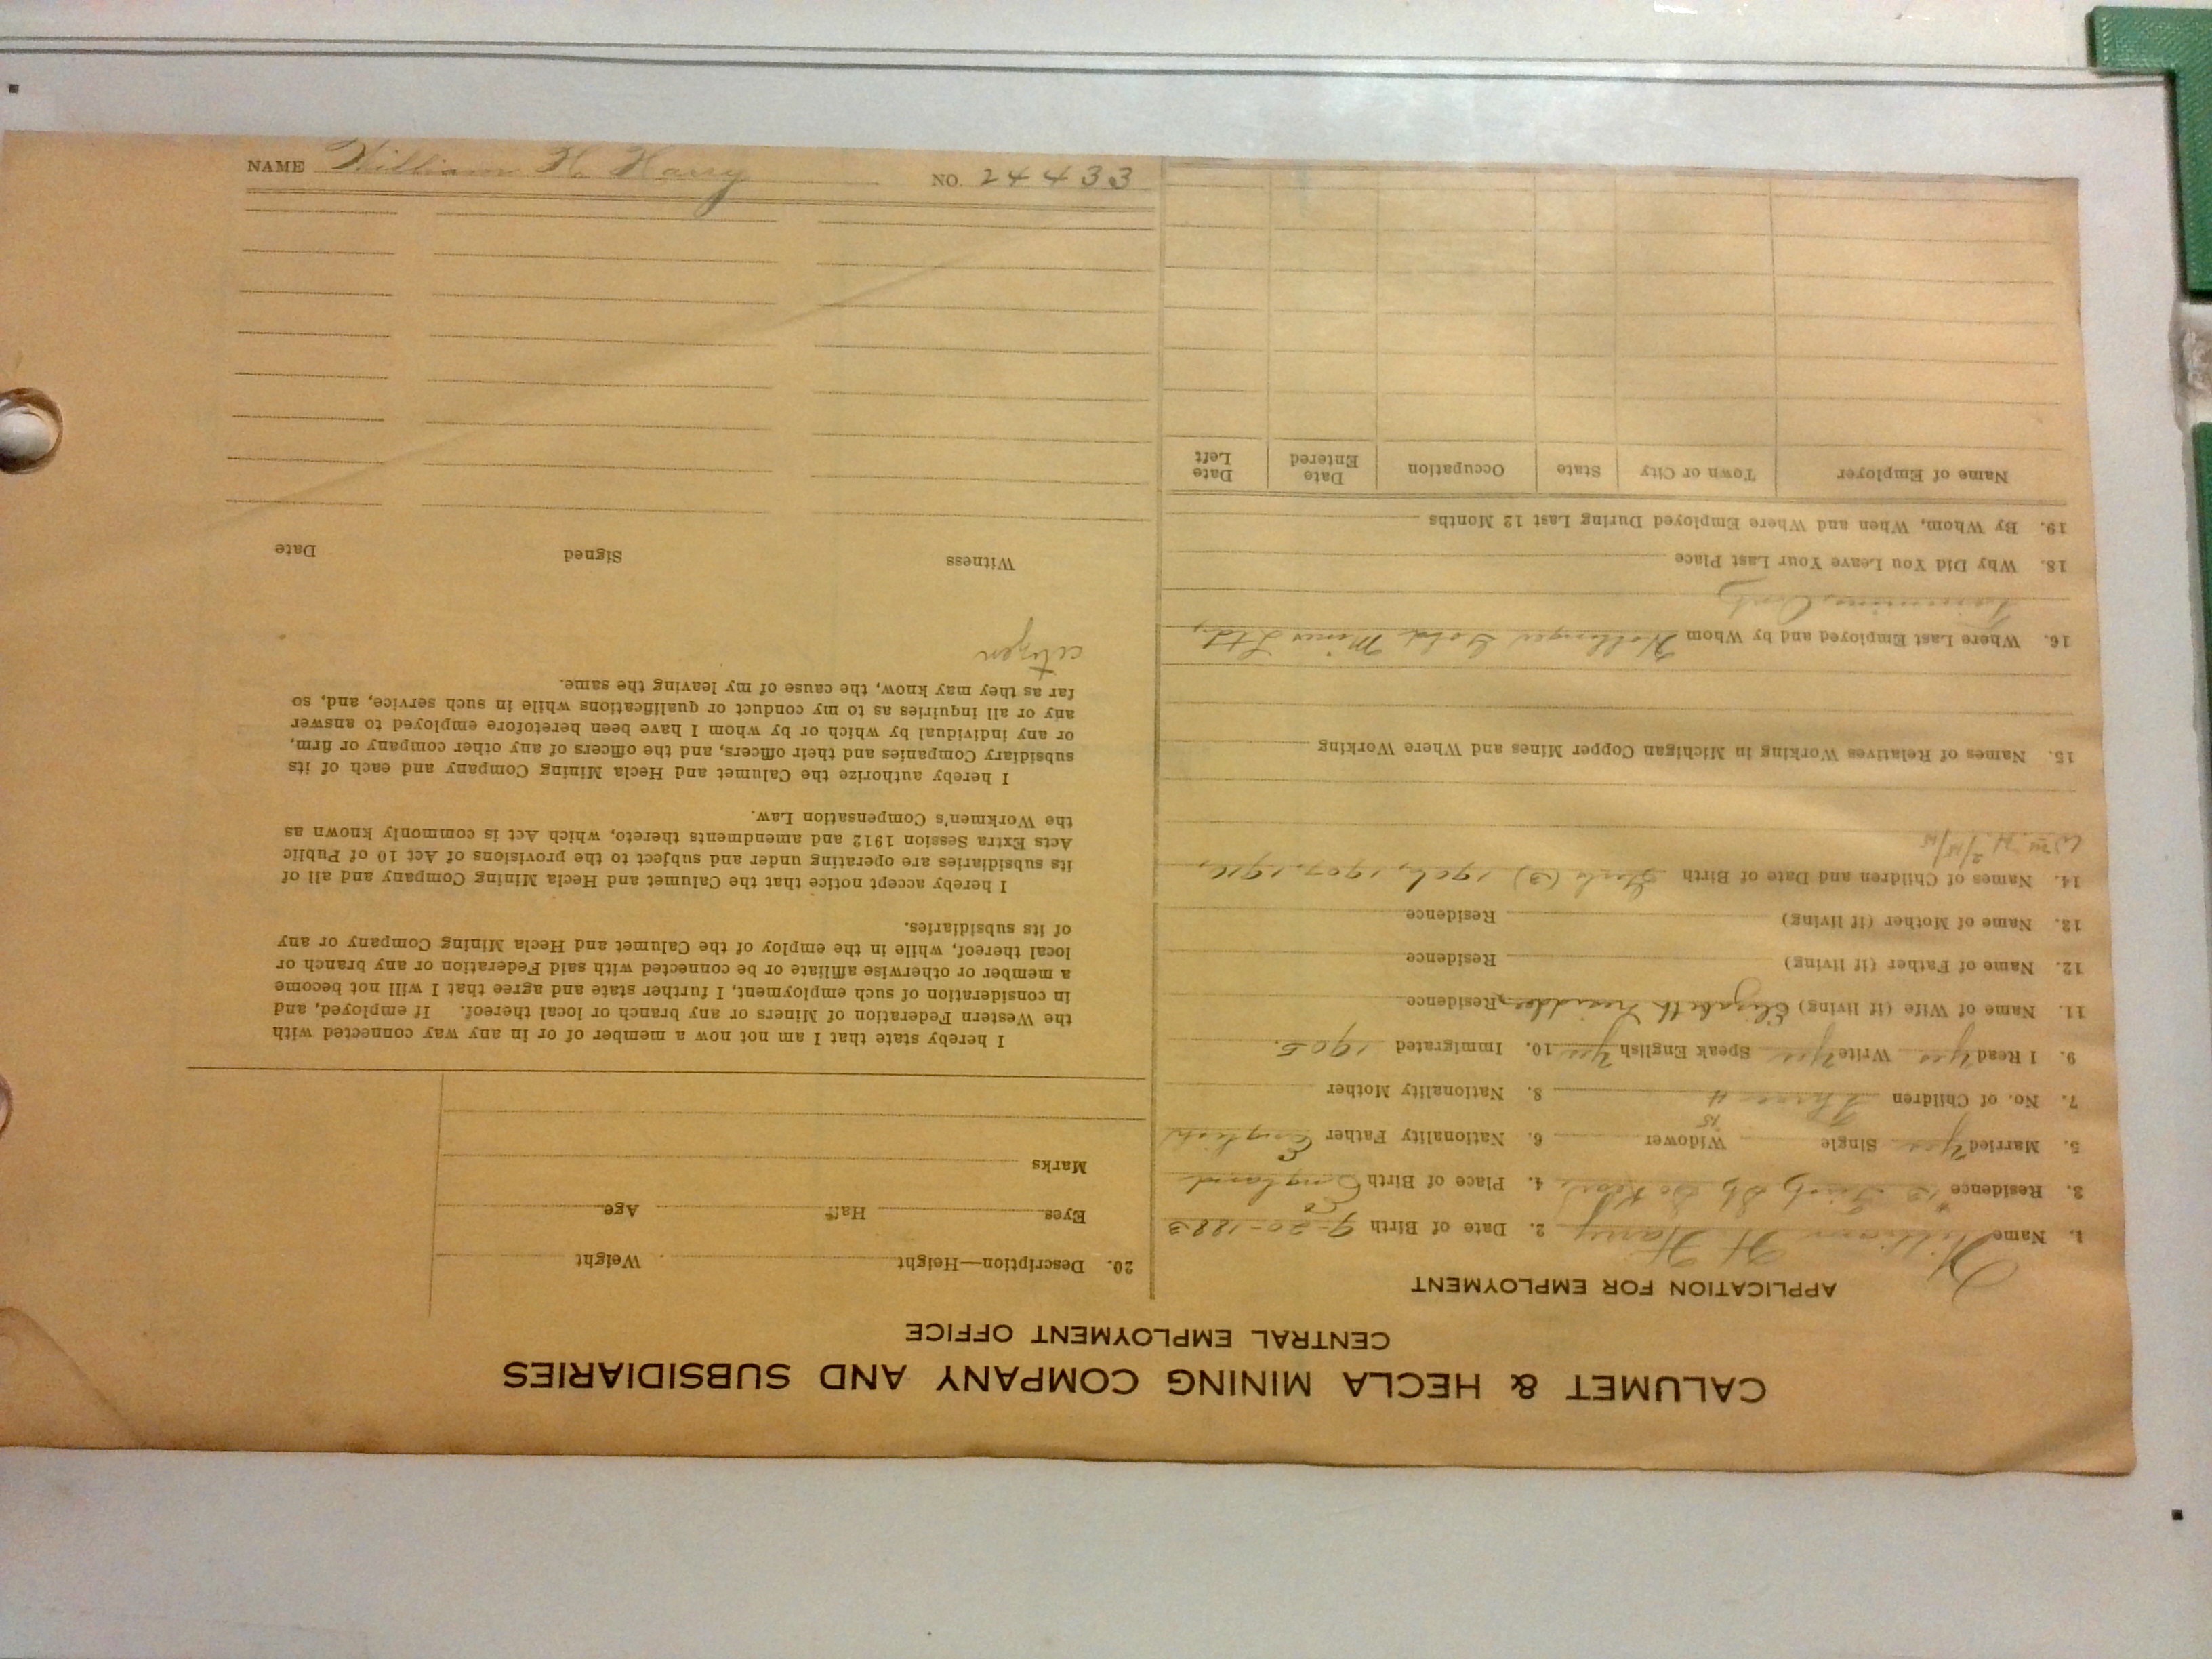 CALUMET & HECLA MINING COMPANY AND SUBSIDIARIES
CENTRAL EMPLOYMENT OFFICE
APPLICATION FOR EMPLOYMENT
1. Name William H. Harry 2. Date of Birth 9-20-1883
3. Residence 4. Place of Birth England
5. Married Yes Single Widower 6. Nationality Father English
15
7. No. of Children Three 4 8. Nationality Mother
9. I Read Yes Write Yes Speak English Yes 10. Immigrated 1905.
11. Name of Wife (if living) Elizabeth Residence
12. Name of Father (if living) Residence
13. Name of Mother (if living) Residence
14. Names of Children and Date of Birth Girls (3) 1906, 1907, 1916,
Wm. H. 2/15/15
15. Names of Relatives Working in Michigan Copper Mines and Where Working
16. Where Last Employed and by Whom Hollinger Gold Mines Ltd,
Timmins, Ont,
18. Why Did You Leave Your Last Place
19. By Whom, When and Where Employed During Last 12 Months
Name of Employer Town or City State Occupation Date Entered Date Left
20. Description—Height Weight
Eyes Hair Age
Marks
I hereby state that I am not now a member of or in any way connected with
the Western Federation of Miners or any branch or local thereof. If employed, and
in consideration of such employment, I further state and agree that I will not become
a member or otherwise affiliate or be connected with said Federation or any branch or
local thereof, while in the employ of the Calumet and Hecla Mining Company or any
of its subsidiaries.
I hereby accept notice that the Calumet and Hecla Mining Company and all of
its subsidiaries are operating under and subject to the provisions of Act 10 of Public
Acts Extra Session 1912 and amendments thereto, which Act is commonly known as
the Workmen's Compensation Law.
I hereby authorize the Calumet and Hecla Mining Company and each of its
subsidiary Companies and their officers, and the officers of any other company or firm,
or any individual by which or by whom I have been heretofore employed to answer
any or all inquiries as to my conduct or qualifications while in such service, and, so
far as they may know, the cause of my leaving the same.
citizen
Witness Signed Date
NAME William H. Harry NO. 24433